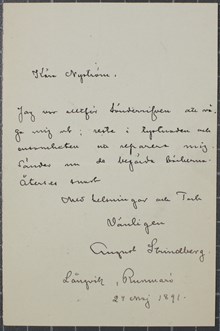 Käre Nyström.
Jag var alltför sönderrifven att vå-
ga mig ut; reste i tystnaden och
ensamheten att reparera mig.
Sänder nu de begärda böckerna.
Återses snart
Med helsningar och Tack
Vänligen
August Strindberg
Långvik, Runmarö
27 Maj 1891.